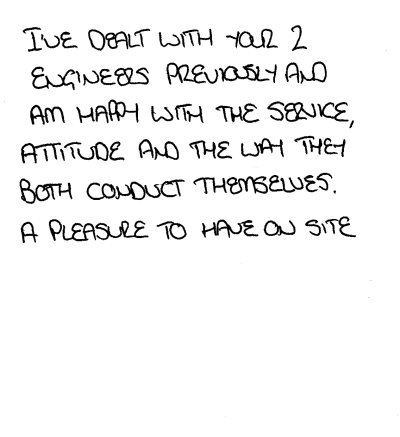 I'VE DEALT WITH YOUR 2
ENGINEERS PREVIOUSLY AND
AM HAPPY WITH THE SERVICE,
ATTITUDE AND THE WAY THEY
BOTH CONDUCT THEMSELVES.
A PLEASURE TO HAVE ON SITE